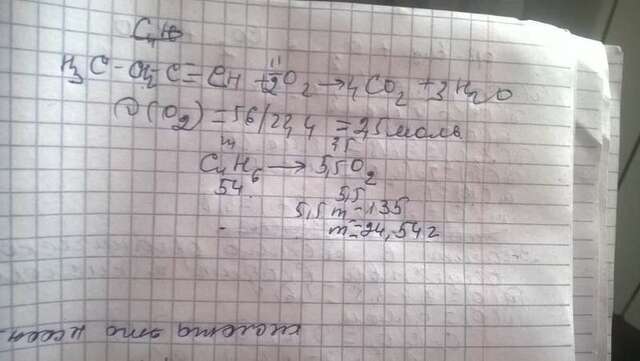 C₄H₆
H₃C-CH₂C≡CH + 11/2O₂ → 4CO₂ + 3H₂O
ν(O₂) = 56/22,4 = 2,5 моль
m 2,5
C₄H₆ → 5,5O₂
54 5,5
5,5m = 135
m = 24,54 г